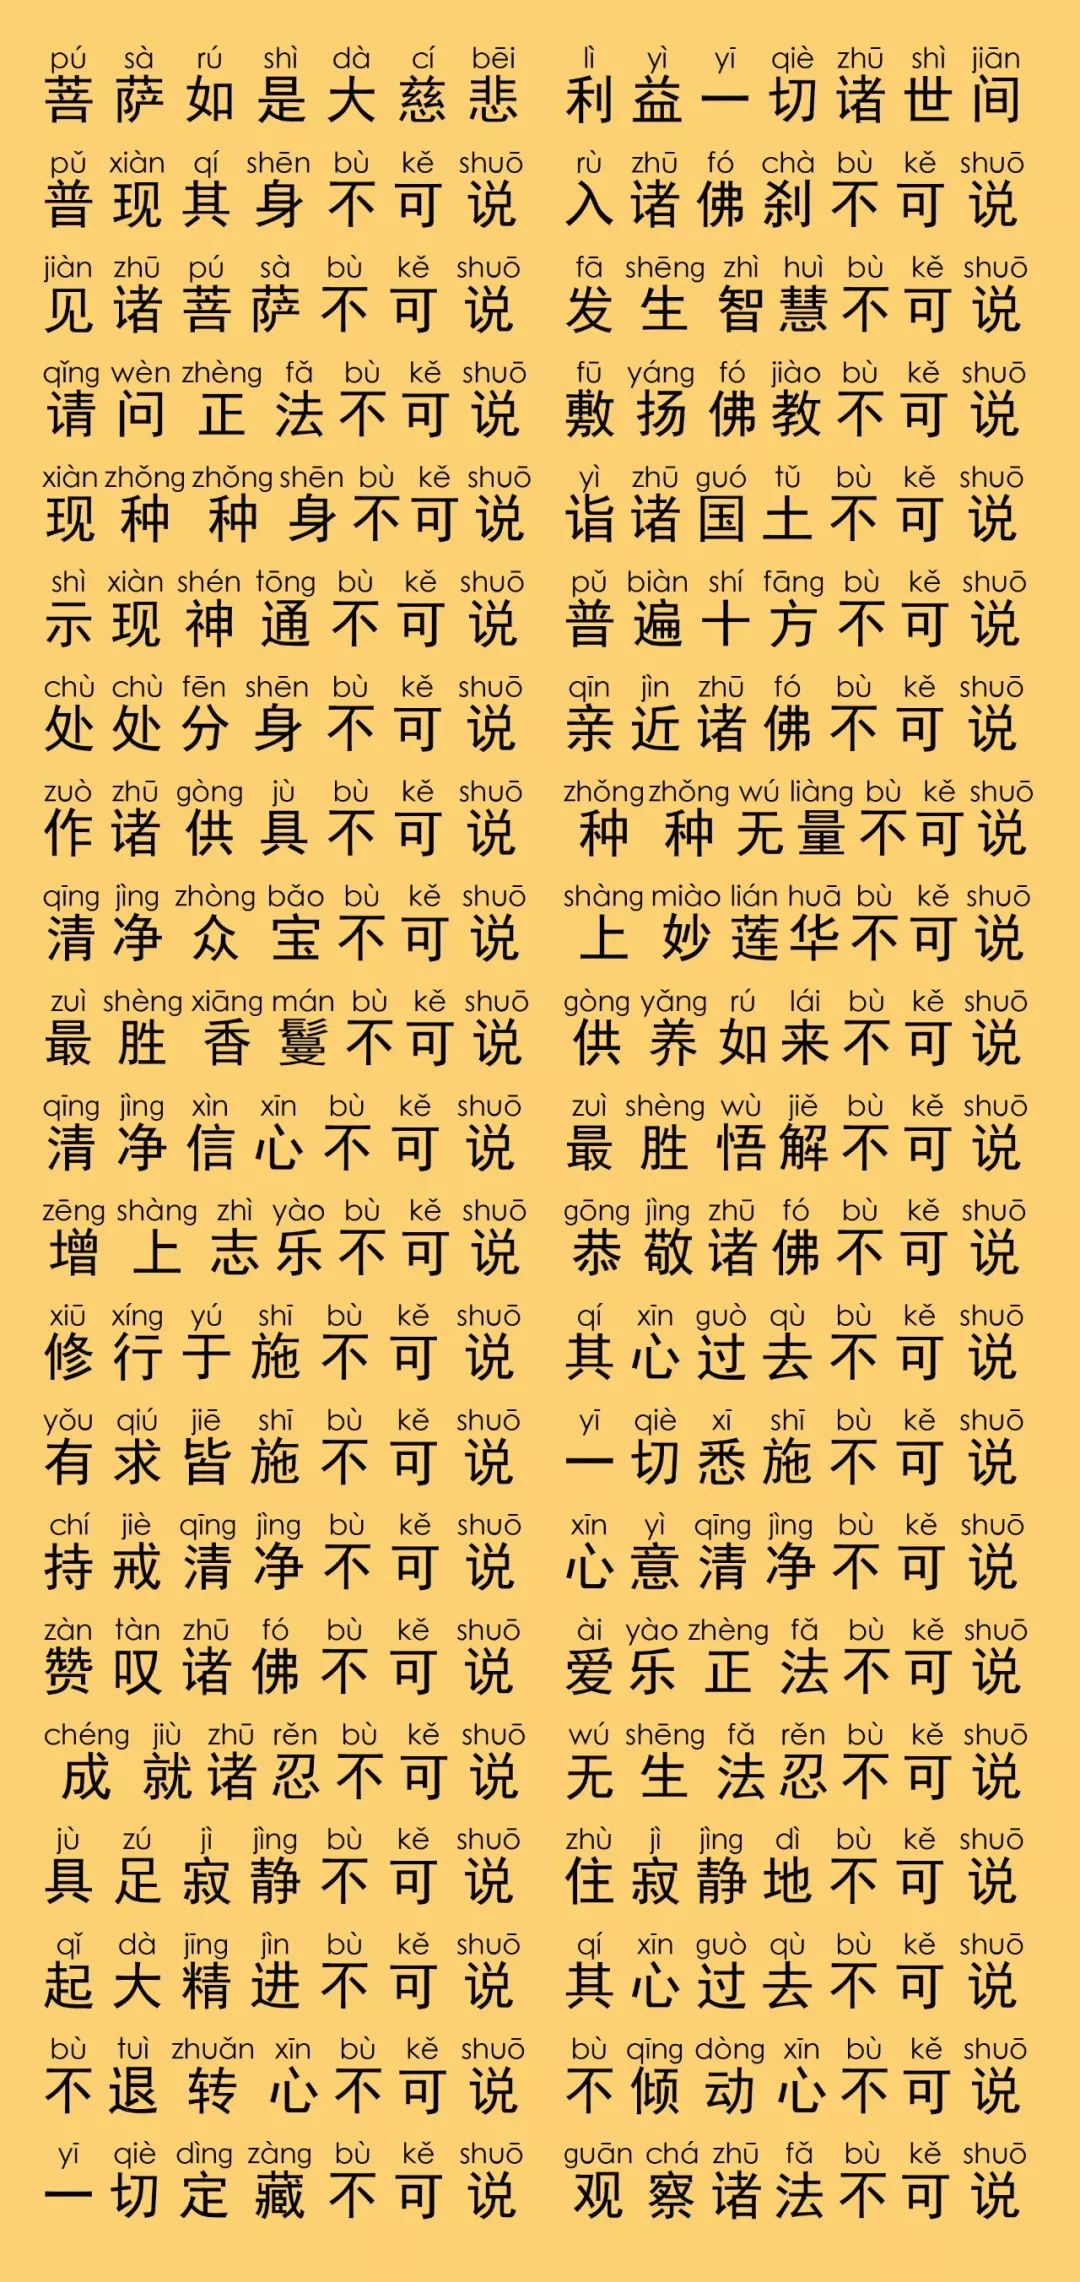 pú sà rú shì dà cí bēi lì yì yī qiè zhū shì jiān
菩萨如是大慈悲 利益一切诸世间
pǔ xiàn qí shēn bù kě shuō rù zhū fó chà bù kě shuō
普现其身不可说 入诸佛刹不可说
jiàn zhū pú sà bù kě shuō fā shēng zhì huì bù kě shuō
见诸菩萨不可说 发生智慧不可说
qǐng wèn zhèng fǎ bù kě shuō fū yáng fó jiào bù kě shuō
请问正法不可说 敷扬佛教不可说
xiàn zhǒng zhǒng shēn bù kě shuō yì zhū guó tǔ bù kě shuō
现种种身不可说 诣诸国土不可说
shì xiàn shén tōng bù kě shuō pǔ biàn shí fāng bù kě shuō
示现神通不可说 普遍十方不可说
chù chù fēn shēn bù kě shuō qīn jìn zhū fó bù kě shuō
处处分身不可说 亲近诸佛不可说
zuò zhū gòng jù bù kě shuō zhǒng zhǒng wú liàng bù kě shuō
作诸供具不可说 种种无量不可说
qīng jìng zhòng bǎo bù kě shuō shàng miào lián huā bù kě shuō
清净众宝不可说 上妙莲华不可说
zuì shèng xiāng mán bù kě shuō gòng yǎng rú lái bù kě shuō
最胜香鬘不可说 供养如来不可说
qīng jìng xìn xīn bù kě shuō zuì shèng wù jiě bù kě shuō
清净信心不可说 最胜悟解不可说
zēng shàng zhì yào bù kě shuō gōng jìng zhū fó bù kě shuō
增上志乐不可说 恭敬诸佛不可说
xiū xíng yú shī bù kě shuō qí xīn guò qù bù kě shuō
修行于施不可说 其心过去不可说
yǒu qiú jiē shī bù kě shuō yī qiè xī shī bù kě shuō
有求皆施不可说 一切悉施不可说
chí jiè qīng jìng bù kě shuō xīn yì qīng jìng bù kě shuō
持戒清净不可说 心意清净不可说
zàn tàn zhū fó bù kě shuō ài yào zhèng fǎ bù kě shuō
赞叹诸佛不可说 爱乐正法不可说
chéng jiù zhū rěn bù kě shuō wú shēng fǎ rěn bù kě shuō
成就诸忍不可说 无生法忍不可说
jù zú jì jìng bù kě shuō zhù jì jìng dì bù kě shuō
具足寂静不可说 住寂静地不可说
qǐ dà jīng jìn bù kě shuō qí xīn guò qù bù kě shuō
起大精进不可说 其心过去不可说
bù tuì zhuǎn xīn bù kě shuō bù qīng dòng xīn bù kě shuō
不退转心不可说 不倾动心不可说
yī qiè dìng zàng bù kě shuō guān chá zhū fǎ bù kě shuō
一切定藏不可说 观察诸法不可说